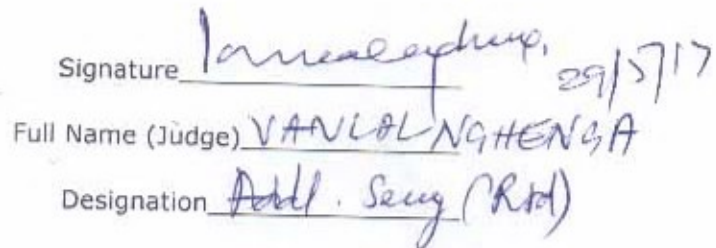 Signature 29/5/17
Full Name (Judge) VANLALNGHENGA
Designation Addl. Secy (Rtd)